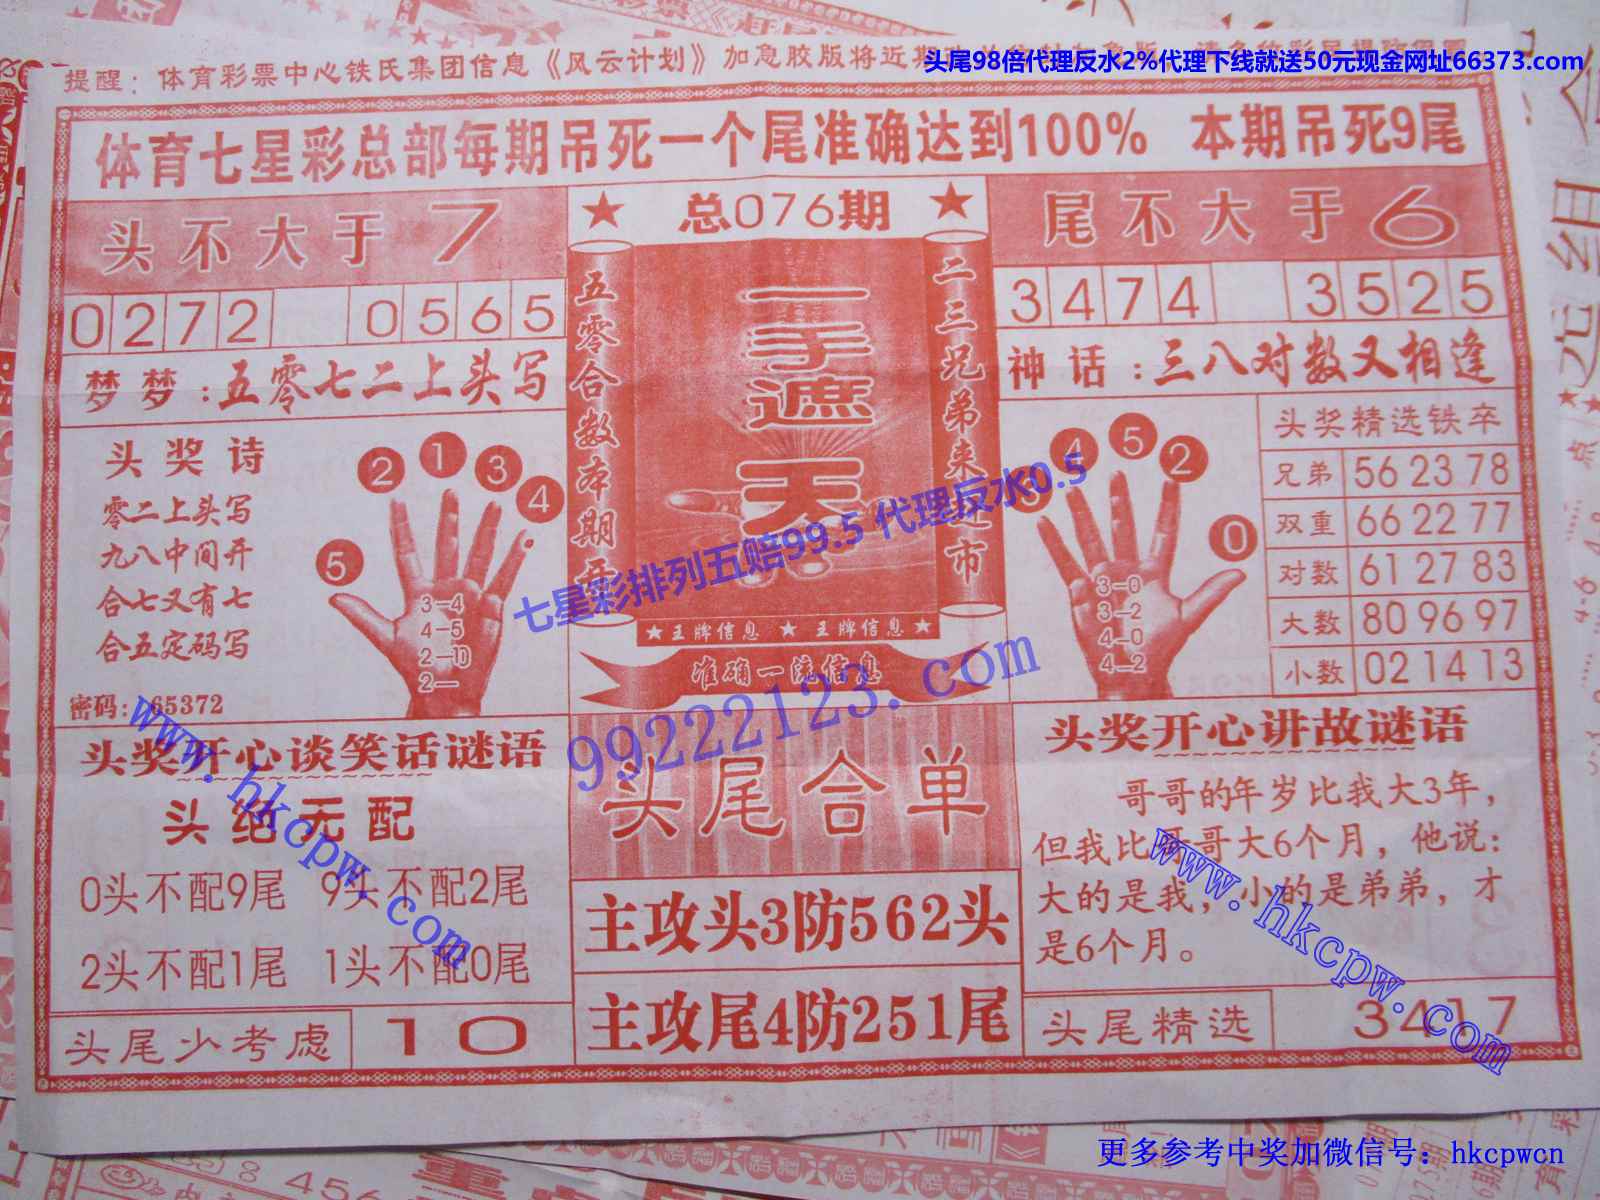 头尾98倍代理反水2%代理下线就送50元现金网址66373.com
提醒：体育彩票中心铁氏集团信息《风云计划》加急胶版将近期
体育七星彩总部每期吊死一个尾准确达到100% 本期吊死9尾
头不大于7
总076期
尾不大于6
0272 0565
3474 3525
梦梦：五零七二上头写
神话：三八对数又相逢
五零合数本期开
一手遮天
二三兄弟来上市
头奖诗
零二上头写
九八中间开
合七又有七
合五定码写
密码：65372
2 1 3 4
5
3-4
4-5
2-10
2-
4 5 2
0
3-0
3-2
4-0
4-2
头奖精选铁卒
兄弟 56 23 78
双重 66 22 77
对数 61 27 83
大数 80 96 97
小数 02 14 13
王牌信息 王牌信息
准确一流信息
七星彩排列五赔99.5 代理反水0.5
99222123.com
www.hkcpw.com
头奖开心谈笑话谜语
头绝无配
0头不配9尾 9头不配2尾
2头不配1尾 1头不配0尾
头尾少考虑 10
头尾合单
主攻头3防562头
主攻尾4防251尾
头奖开心讲故谜语
哥哥的年岁比我大3年，
但我比哥哥大6个月，他说：
大的是我，小的是弟弟，才
是6个月。
www.hkcpw.com
头尾精选 3417
更多参考中奖加微信号：hkcpwcn